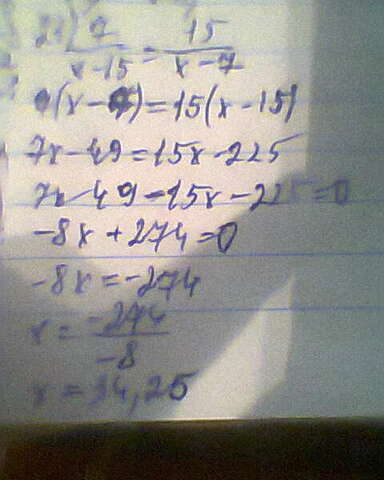 21) 7/(x-15) = 15/(x-7)
7(x-7)=15(x-15)
7x-49=15x-225
7x-49-15x-225=0
-8x+274=0
-8x=-274
x=-274/-8
x=34,25